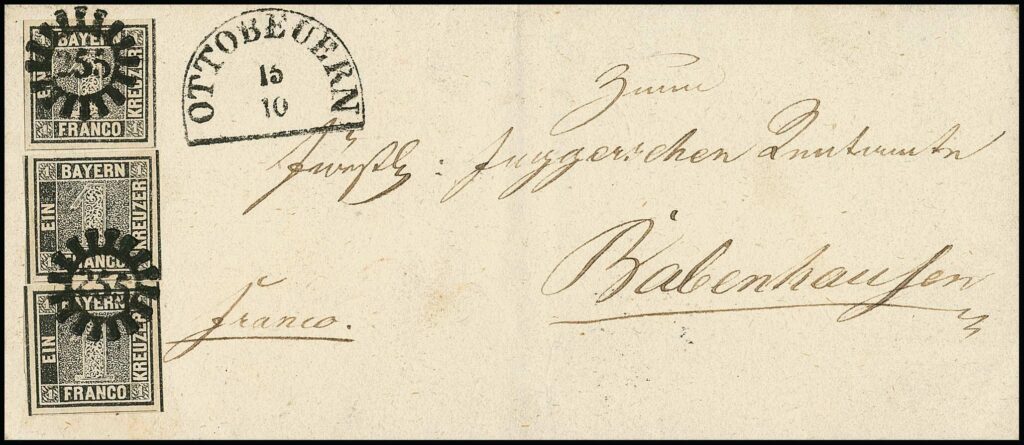 BAYERN
EIN
KREUZER
255
FRANCO
BAYERN
EIN
1
KREUZER
BAYERN
EIN
1
KREUZER
FRANCO
OTTOBEUERN
15
10
Zum
fürstl: Fuggerschen Rentamte
Babenhausen
franco.